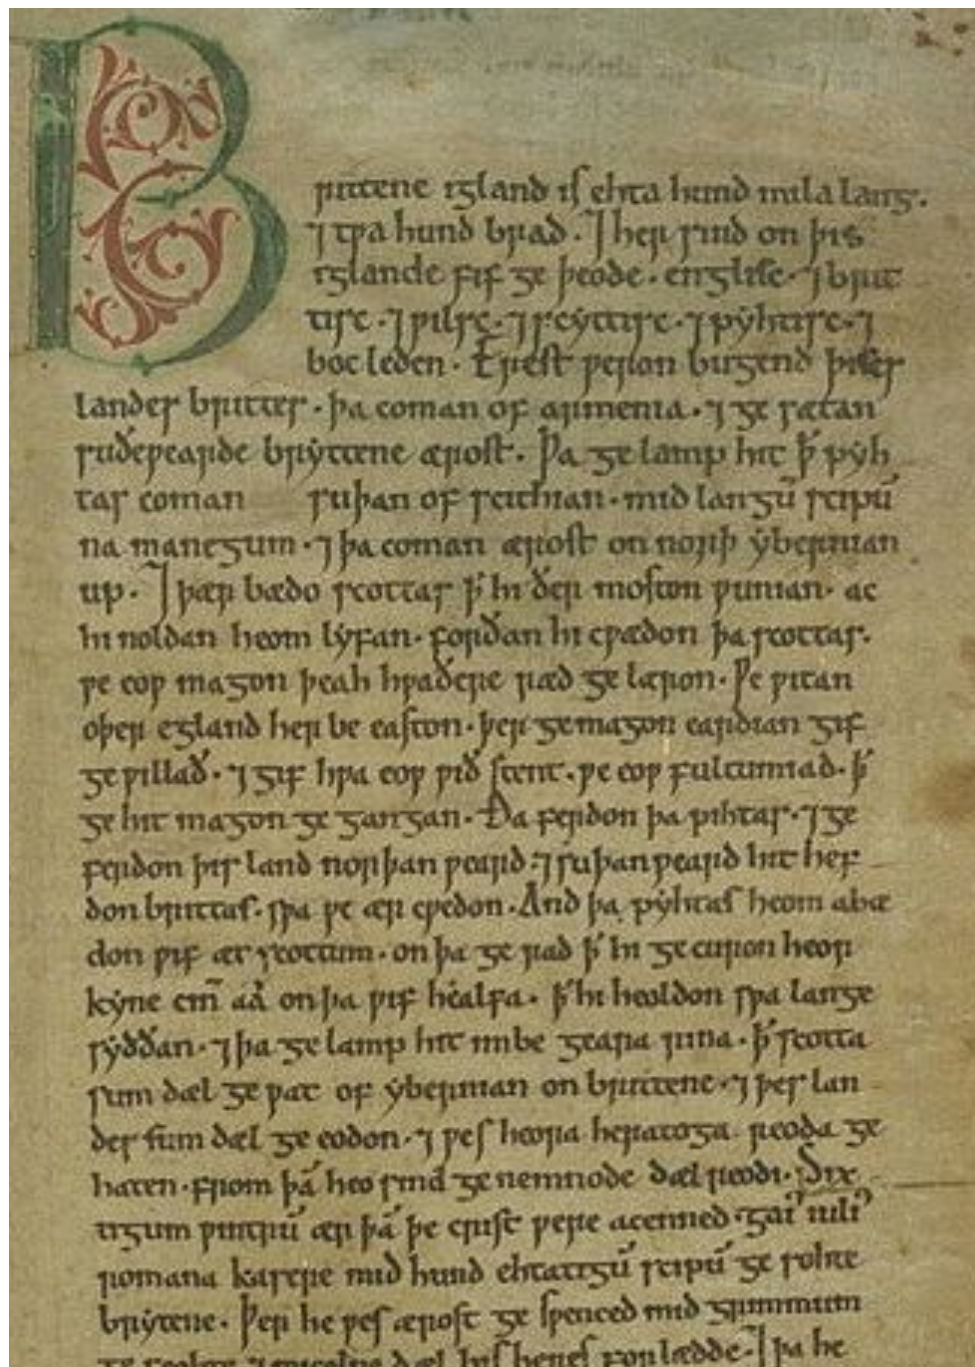 Brittene igland is ehta hund mila lang.
⁊ tƿa hund brad. ⁊ her sind on þis
iglande fif ge þeode. englisc. ⁊ brit
tisc. ⁊ ƿilsc. ⁊ scyttisc. ⁊ pyhtisc. ⁊
boc leden. Erest ƿeron bugend þises
landes brittes. þa coman of armenia. ⁊ ge sætan
suðeƿearde bryttene ærost. Þa ge lamp hit þ̄ pyh
tas coman suþan of scithian. mid langū scipū
na manegum. ⁊ þa coman ærost on norþ ybernian
up. ⁊ þær bædo scottas þ̄ hi ðer moston ƿunian. ac
hi noldan heom lyfan. forðan hi cƿædon þa scottas.
ƿe eoƿ magon þeah hƿaðere ræd ge læron. Ƿe ƿitan
oþer egland her be easton. þer ge magon eardian gif
ge ƿillað. ⁊ gif hƿa eoƿ ƿið stent. ƿe eoƿ fultumiad. þ̄
ge hit magon ge gangan. Ða ferdon þa pihtas. ⁊ ge
ferdon þis land norþan ƿeard. ⁊ suþan ƿeard hit hef
don brittas. sƿa ƿe ær cƿedon. And þa pyhtas heom abæ
don ƿif æt scottum. on þa ge rad þ̄ hi ge curon heor
kyne cin̄ aá on þa ƿif healfa. þ̄ hi heoldon sƿa lange
syððan. ⁊ þa ge lamp hit imbe geara rina. þ̄ scotta
sum dæl ge ƿat of ybernian on brittene. ⁊ þes lan
des sum dæl ge eodon. ⁊ ƿes heora heratoga reoda ge
haten. from þā heo sind ge nemnode dæl reodi. Six
tigum ƿintrū ær þā þe crist ƿere acenned. gai' iuli'
romana kasere mid hund ehtatigū scipū ge sohte
brytene. Þer he ƿes ærost ge sƿenced mid grimmum
ge feohte. ⁊ micelne dæl his heres forlædde. ⁊ þa he